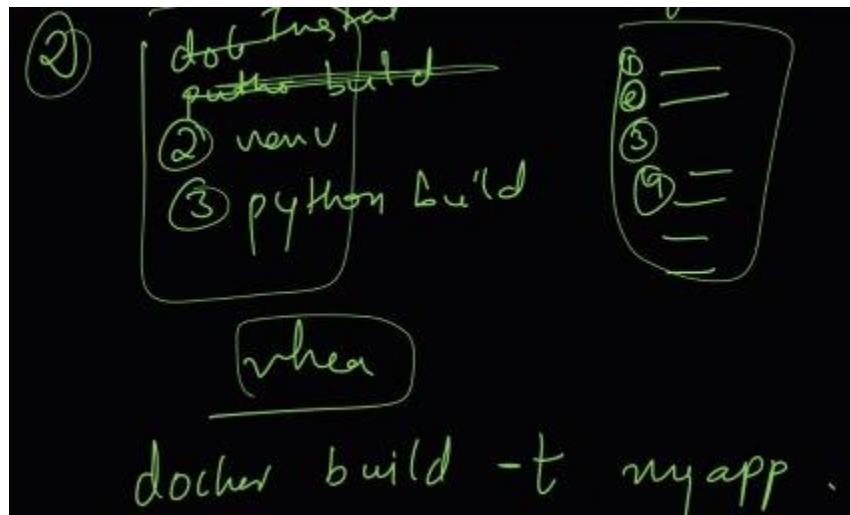 ②
Install
build
② venv
③ python build
①
②
③
④
whea
docker build -t myapp .